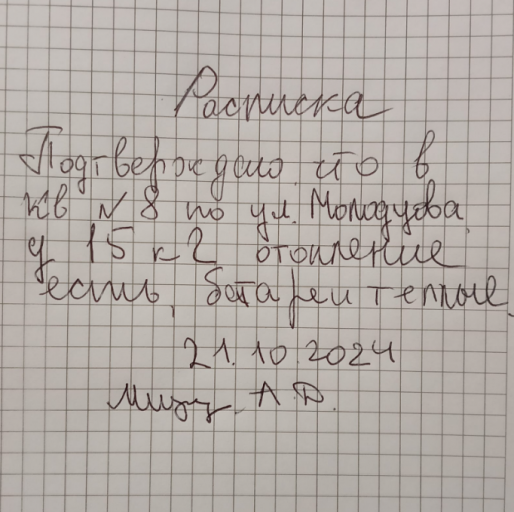 Расписка
Подтверждаю, что в
кв № 8 по ул. Молодцова,
д 15 к 2 отопление
есть, батареи теплые.
21.10.2024
А.Д.